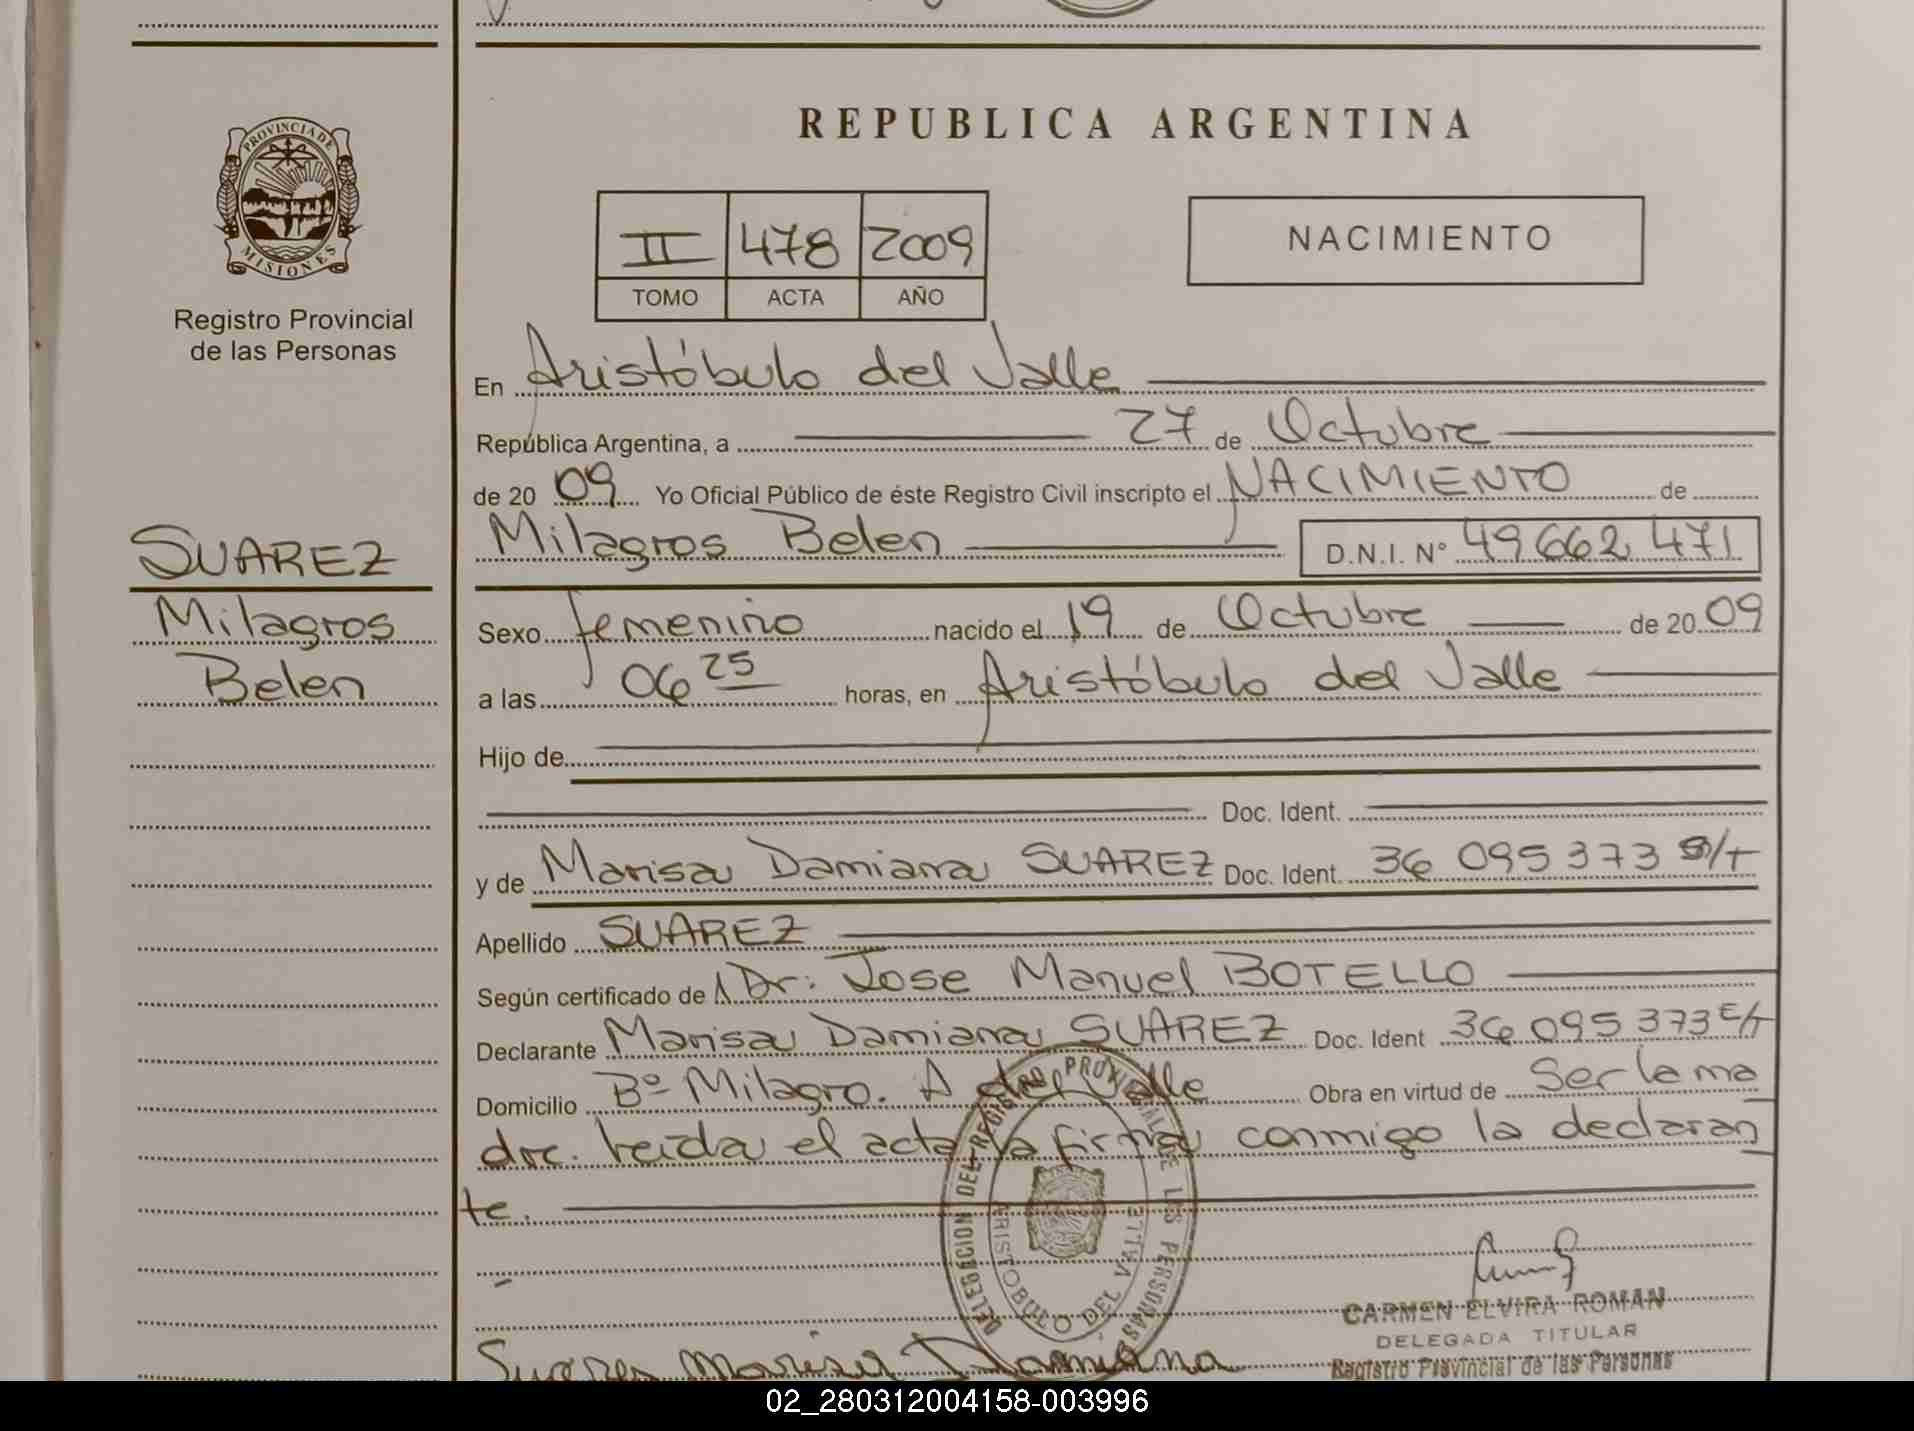 REPUBLICA ARGENTINA
PROVINCIA DE
MISIONES
Registro Provincial
de las Personas
II 478 2009
TOMO ACTA AÑO
NACIMIENTO
En Aristóbulo del Valle
República Argentina, a 27 de Octubre
de 2009 Yo Oficial Público de éste Registro Civil inscripto el NACIMIENTO de
Milagros Belen D.N.I. Nº 49662471
SUAREZ
Milagros
Belen
Sexo femenino nacido el 19 de Octubre de 2009
a las 06 25 horas, en Aristóbulo del Valle
Hijo de
Doc. Ident.
y de Marisa Damiana SUAREZ Doc. Ident. 36 095 373 S/T
Apellido SUAREZ
Según certificado de Dr: Jose Manuel BOTELLO
Declarante Marisa Damiana SUAREZ Doc. Ident 36 095 373 E/T
Domicilio Bº Milagro. A del Valle Obra en virtud de Ser la ma
dre. Leida el acta la firma conmigo la declaran
te.
DELEGACION DEL REGISTRO PROVINCIAL DE LAS PERSONAS
ARISTOBULO DEL VALLE
CARMEN ELVIRA ROMAN
DELEGADA TITULAR
Registro Provincial de las Personas
Suarez Marisa Damiana
02_280312004158-003996